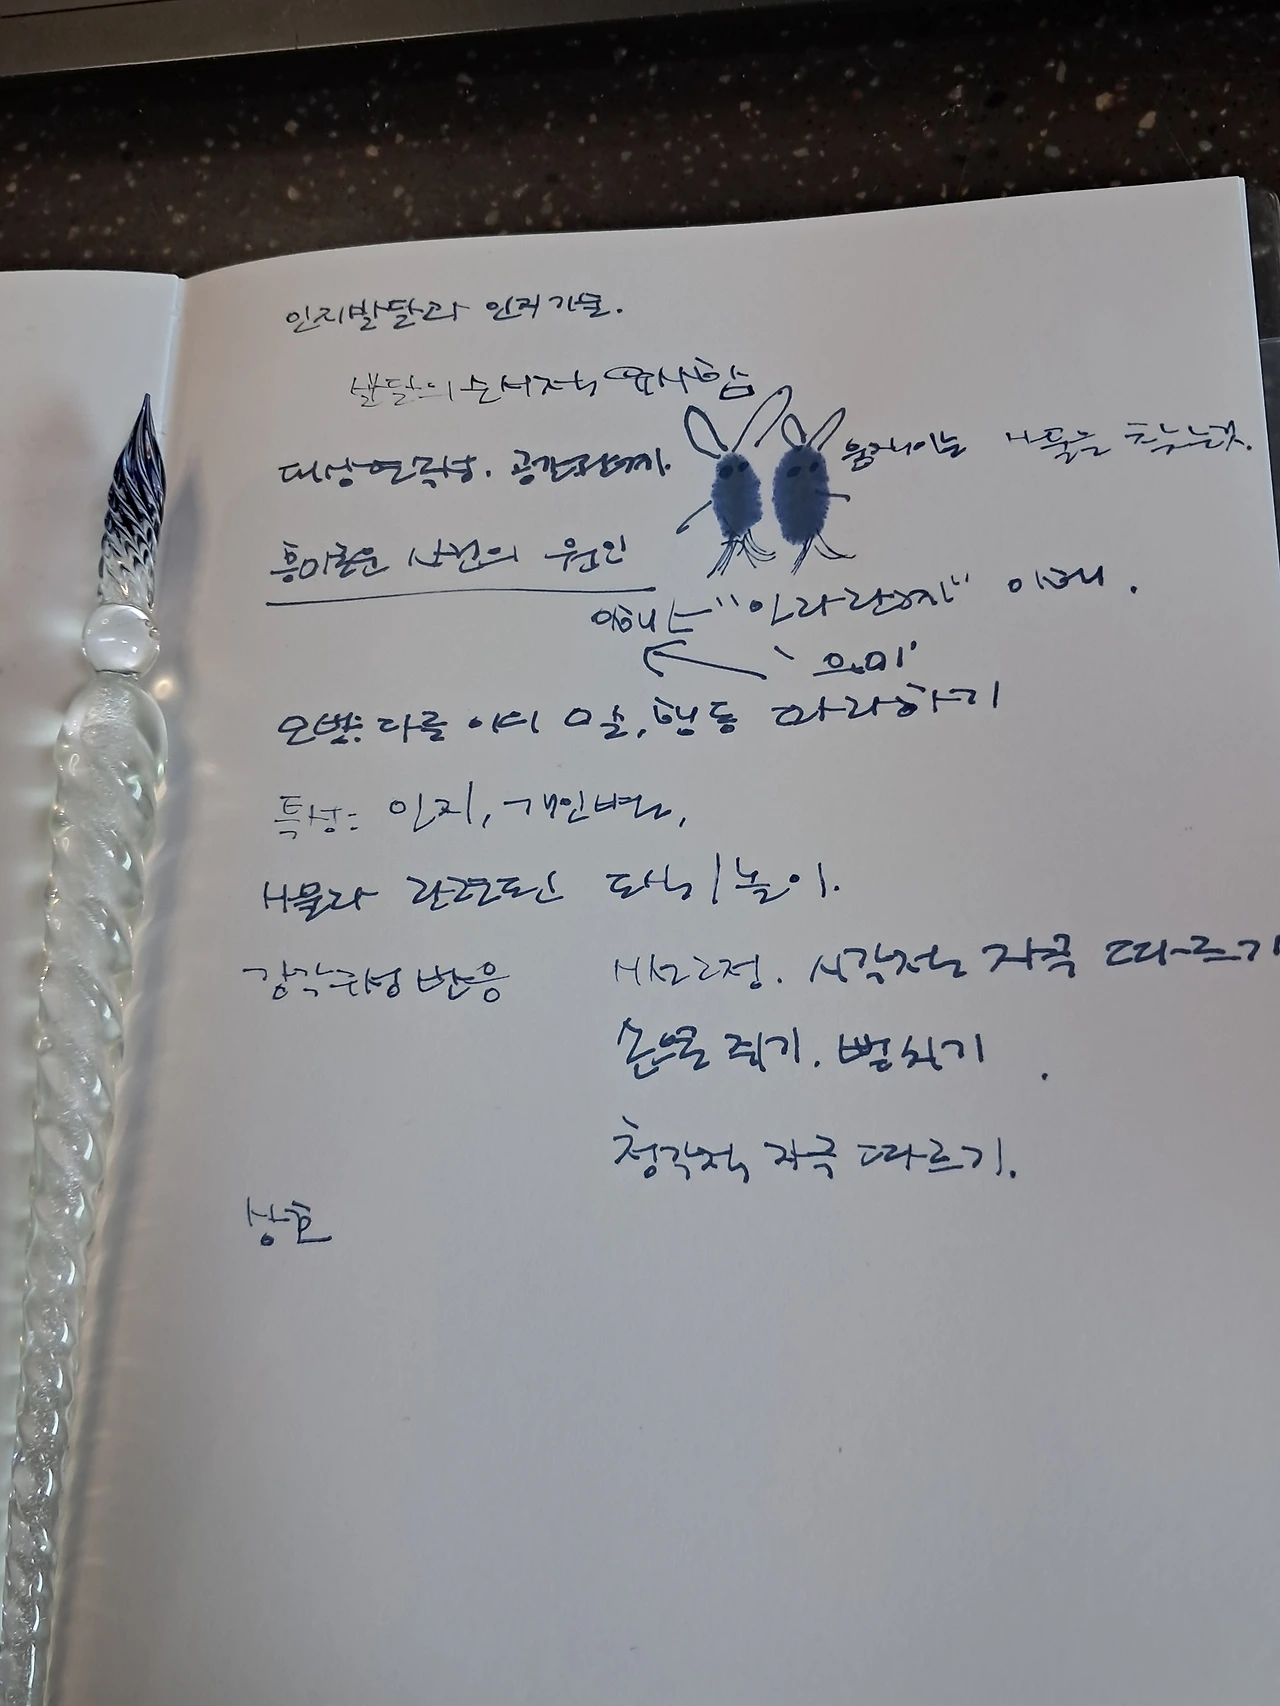 인지발달과 인지기술.
발달의 순서적 유사함
대상연속성. 공간관계.
움직이는 사물을 추적
흥미로운 사건의 원인
이해는 "인과관계" 이해.
의미
모방: 다른 이의 모습, 행동 따라하기
특성: 인지, 개인변인,
사물과 관련된 도식/놀이.
감각규성 반응
시각적 자극 따르기
손으로 쥐기. 뻗치기
청각적 자극 따르기.
상호